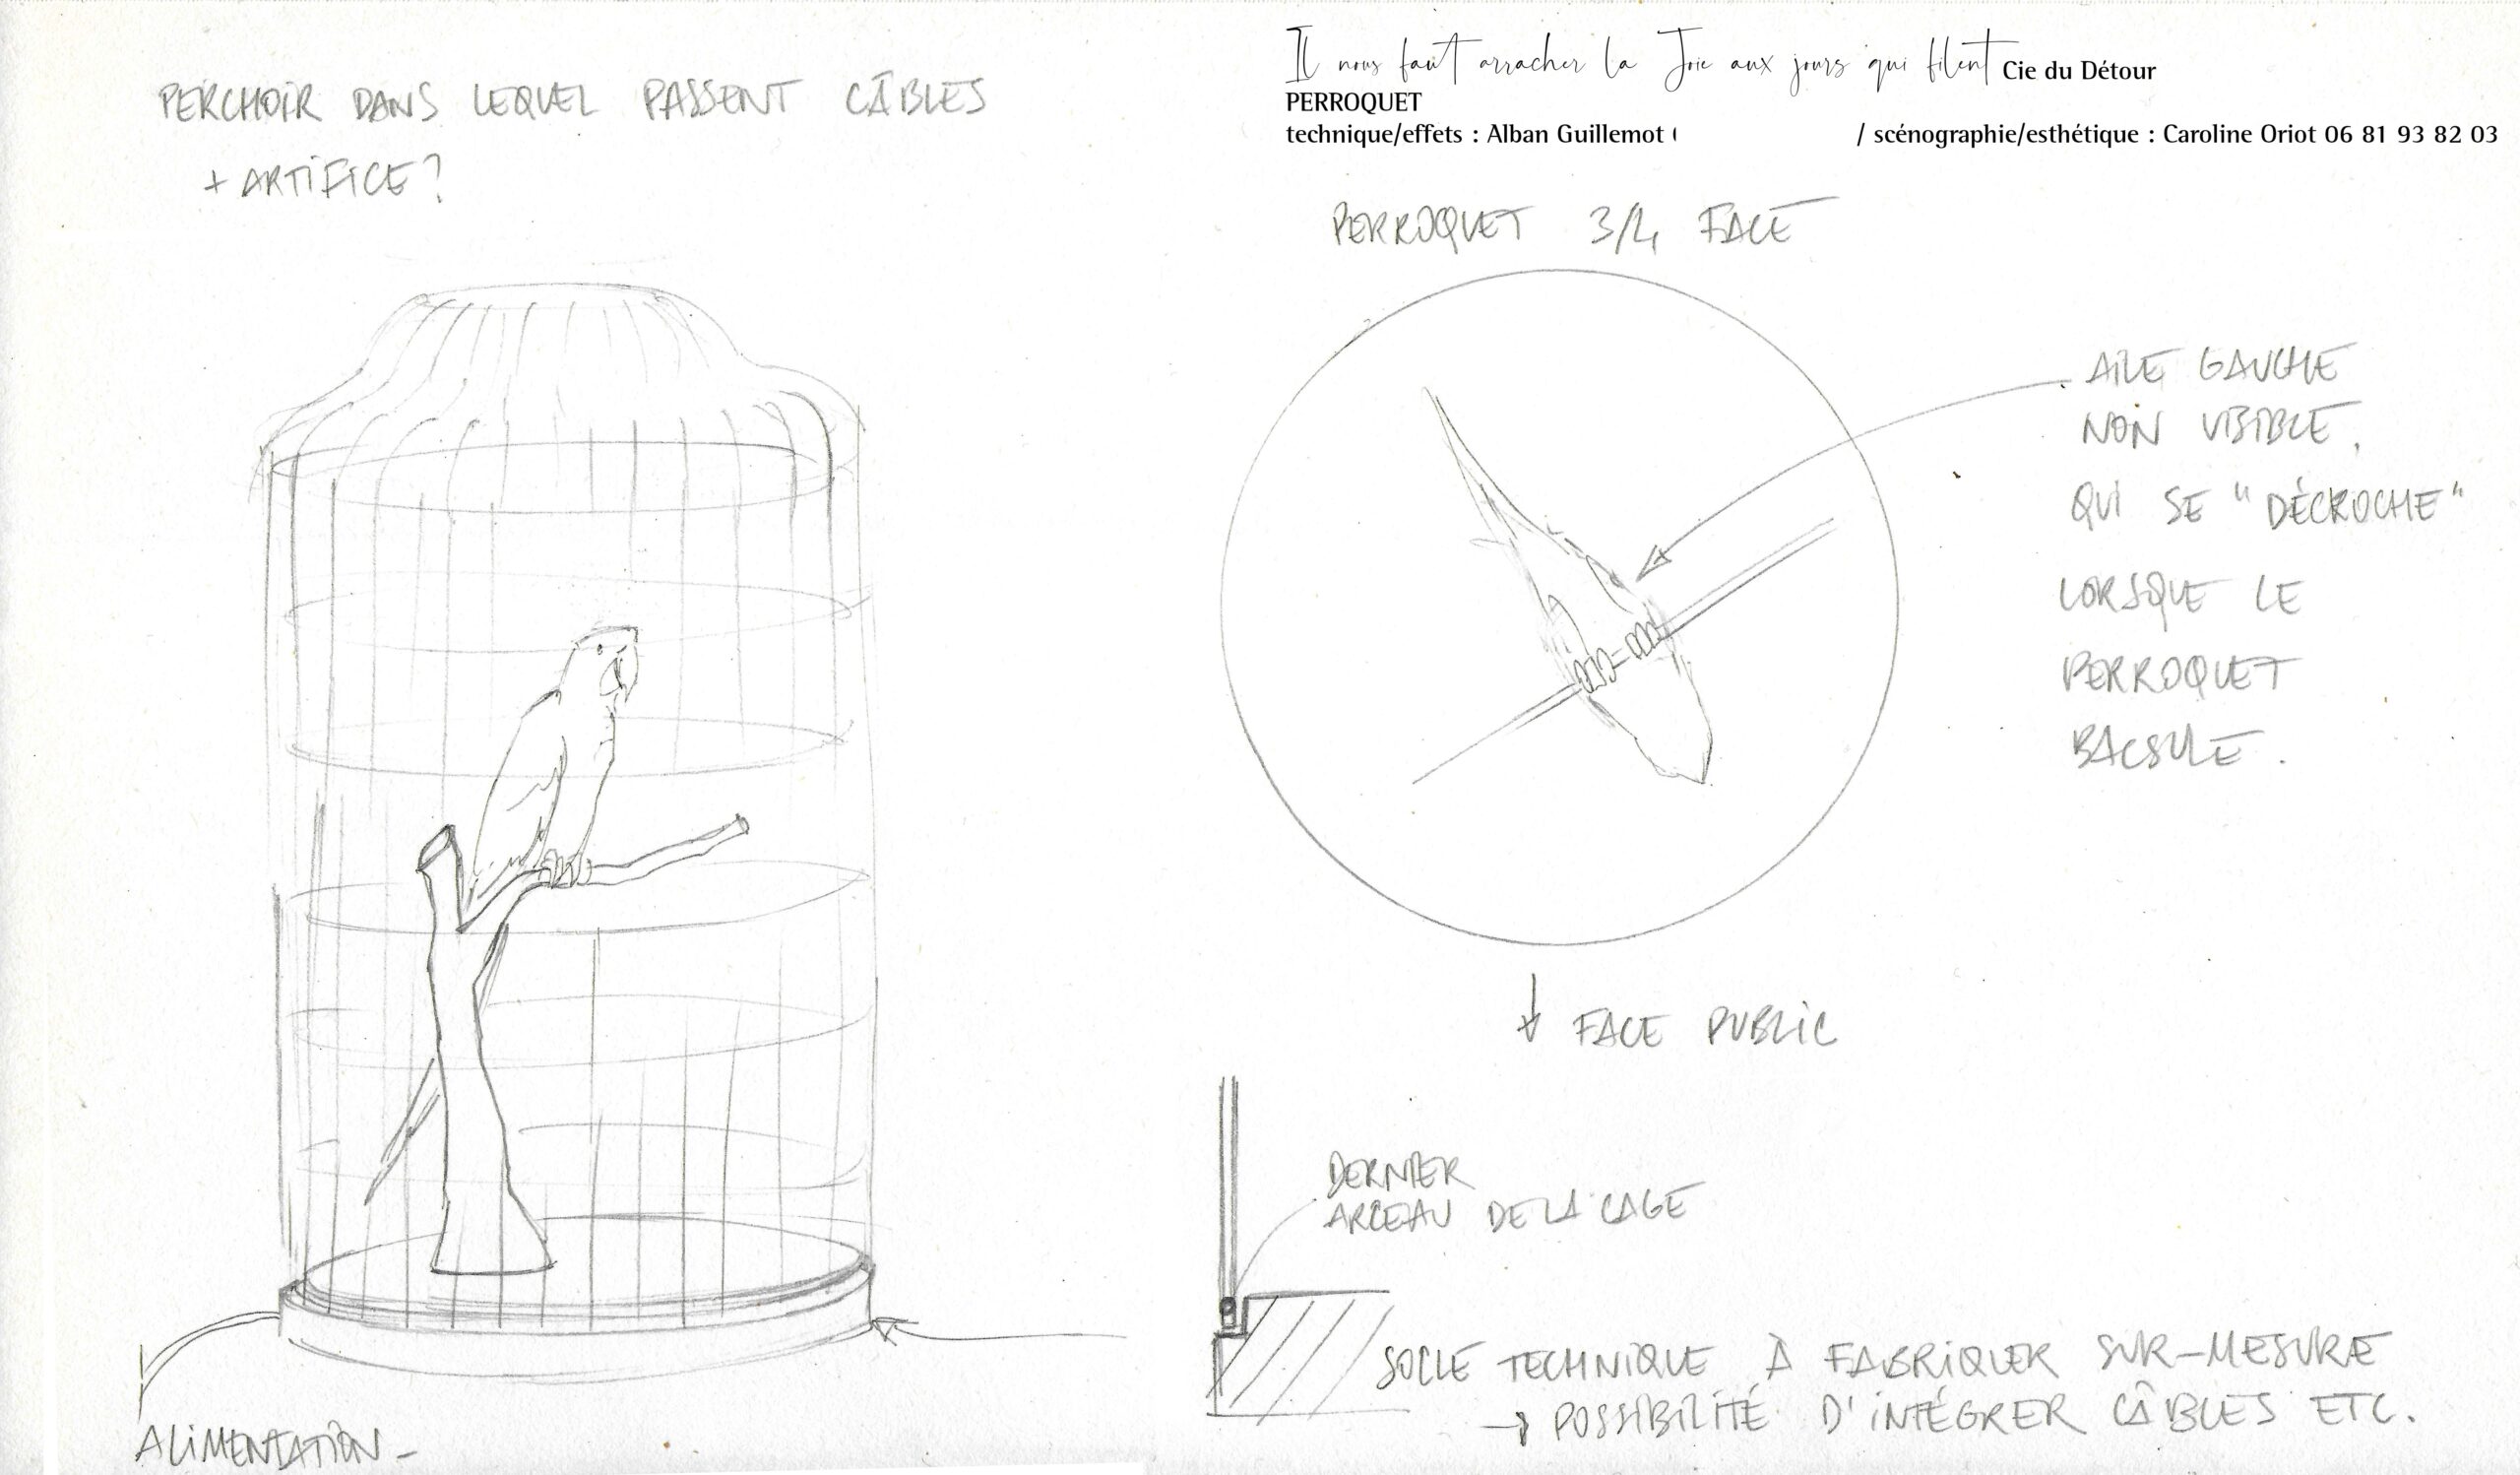 Il nous faut arracher la Joie aux jours qui filent Cie du Détour
PERROQUET
technique/effets : Alban Guillemot ( / scénographie/esthétique : Caroline Oriot 06 81 93 82 03
PERCHOIR DANS LEQUEL PASSENT CÂBLES
+ ARTIFICE?
PERROQUET 3/4 FACE
AILE GAUCHE
NON VISIBLE,
QUI SE "DÉCROCHE"
LORSQUE LE
PERROQUET
BACSULE.
↓ FACE PUBLIC
DERNIER
ARCEAU DE LA CAGE
SOCLE TECHNIQUE À FABRIQUER SUR-MESURE
→ POSSIBILITÉ D'INTÉGRER CÂBLES ETC.
ALIMENTATION -